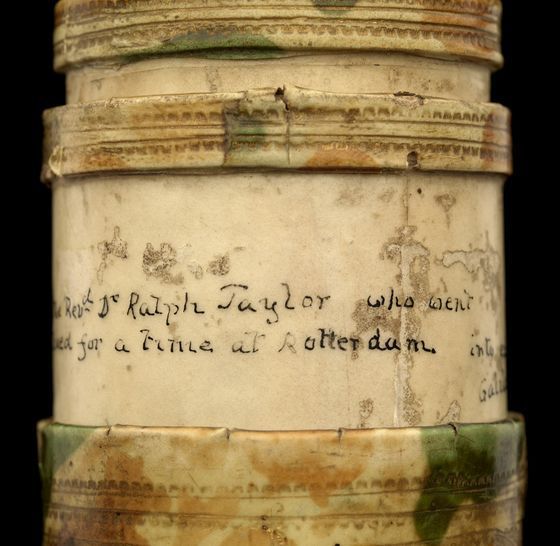 Revd Dr Ralph Taylor who went
for a time at Rotterdam. into